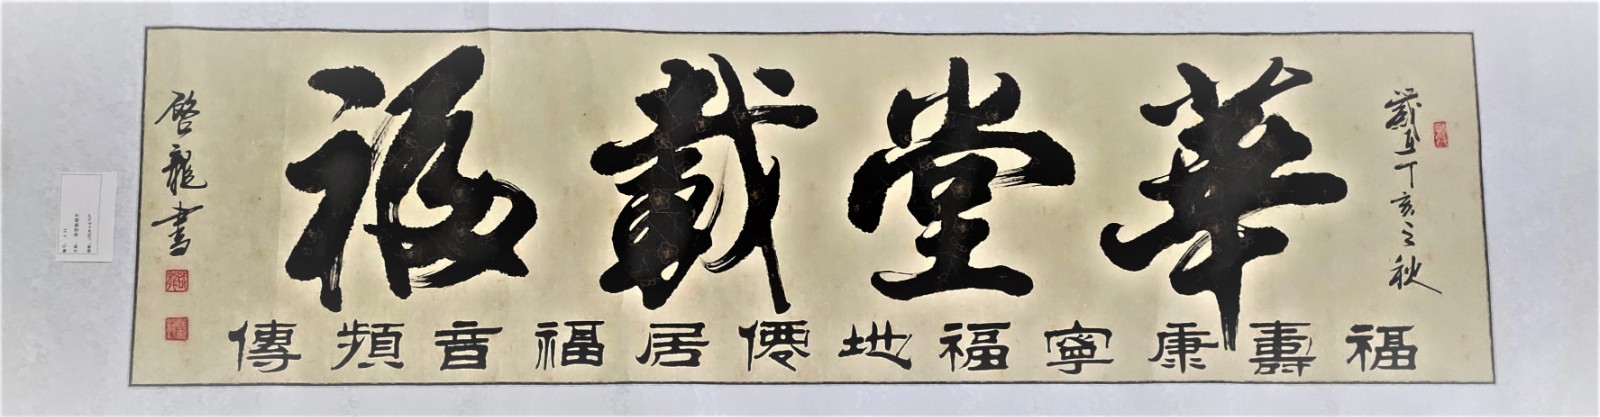 歲在丁亥之秋
華堂載福
福壽康寧福地僊居福音頻傳
啓龍書